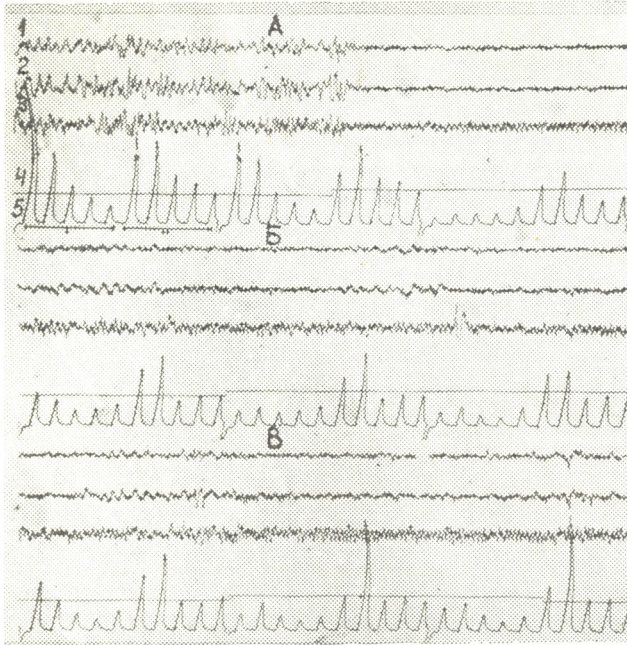 1 А
2
3
4
5
Б
В